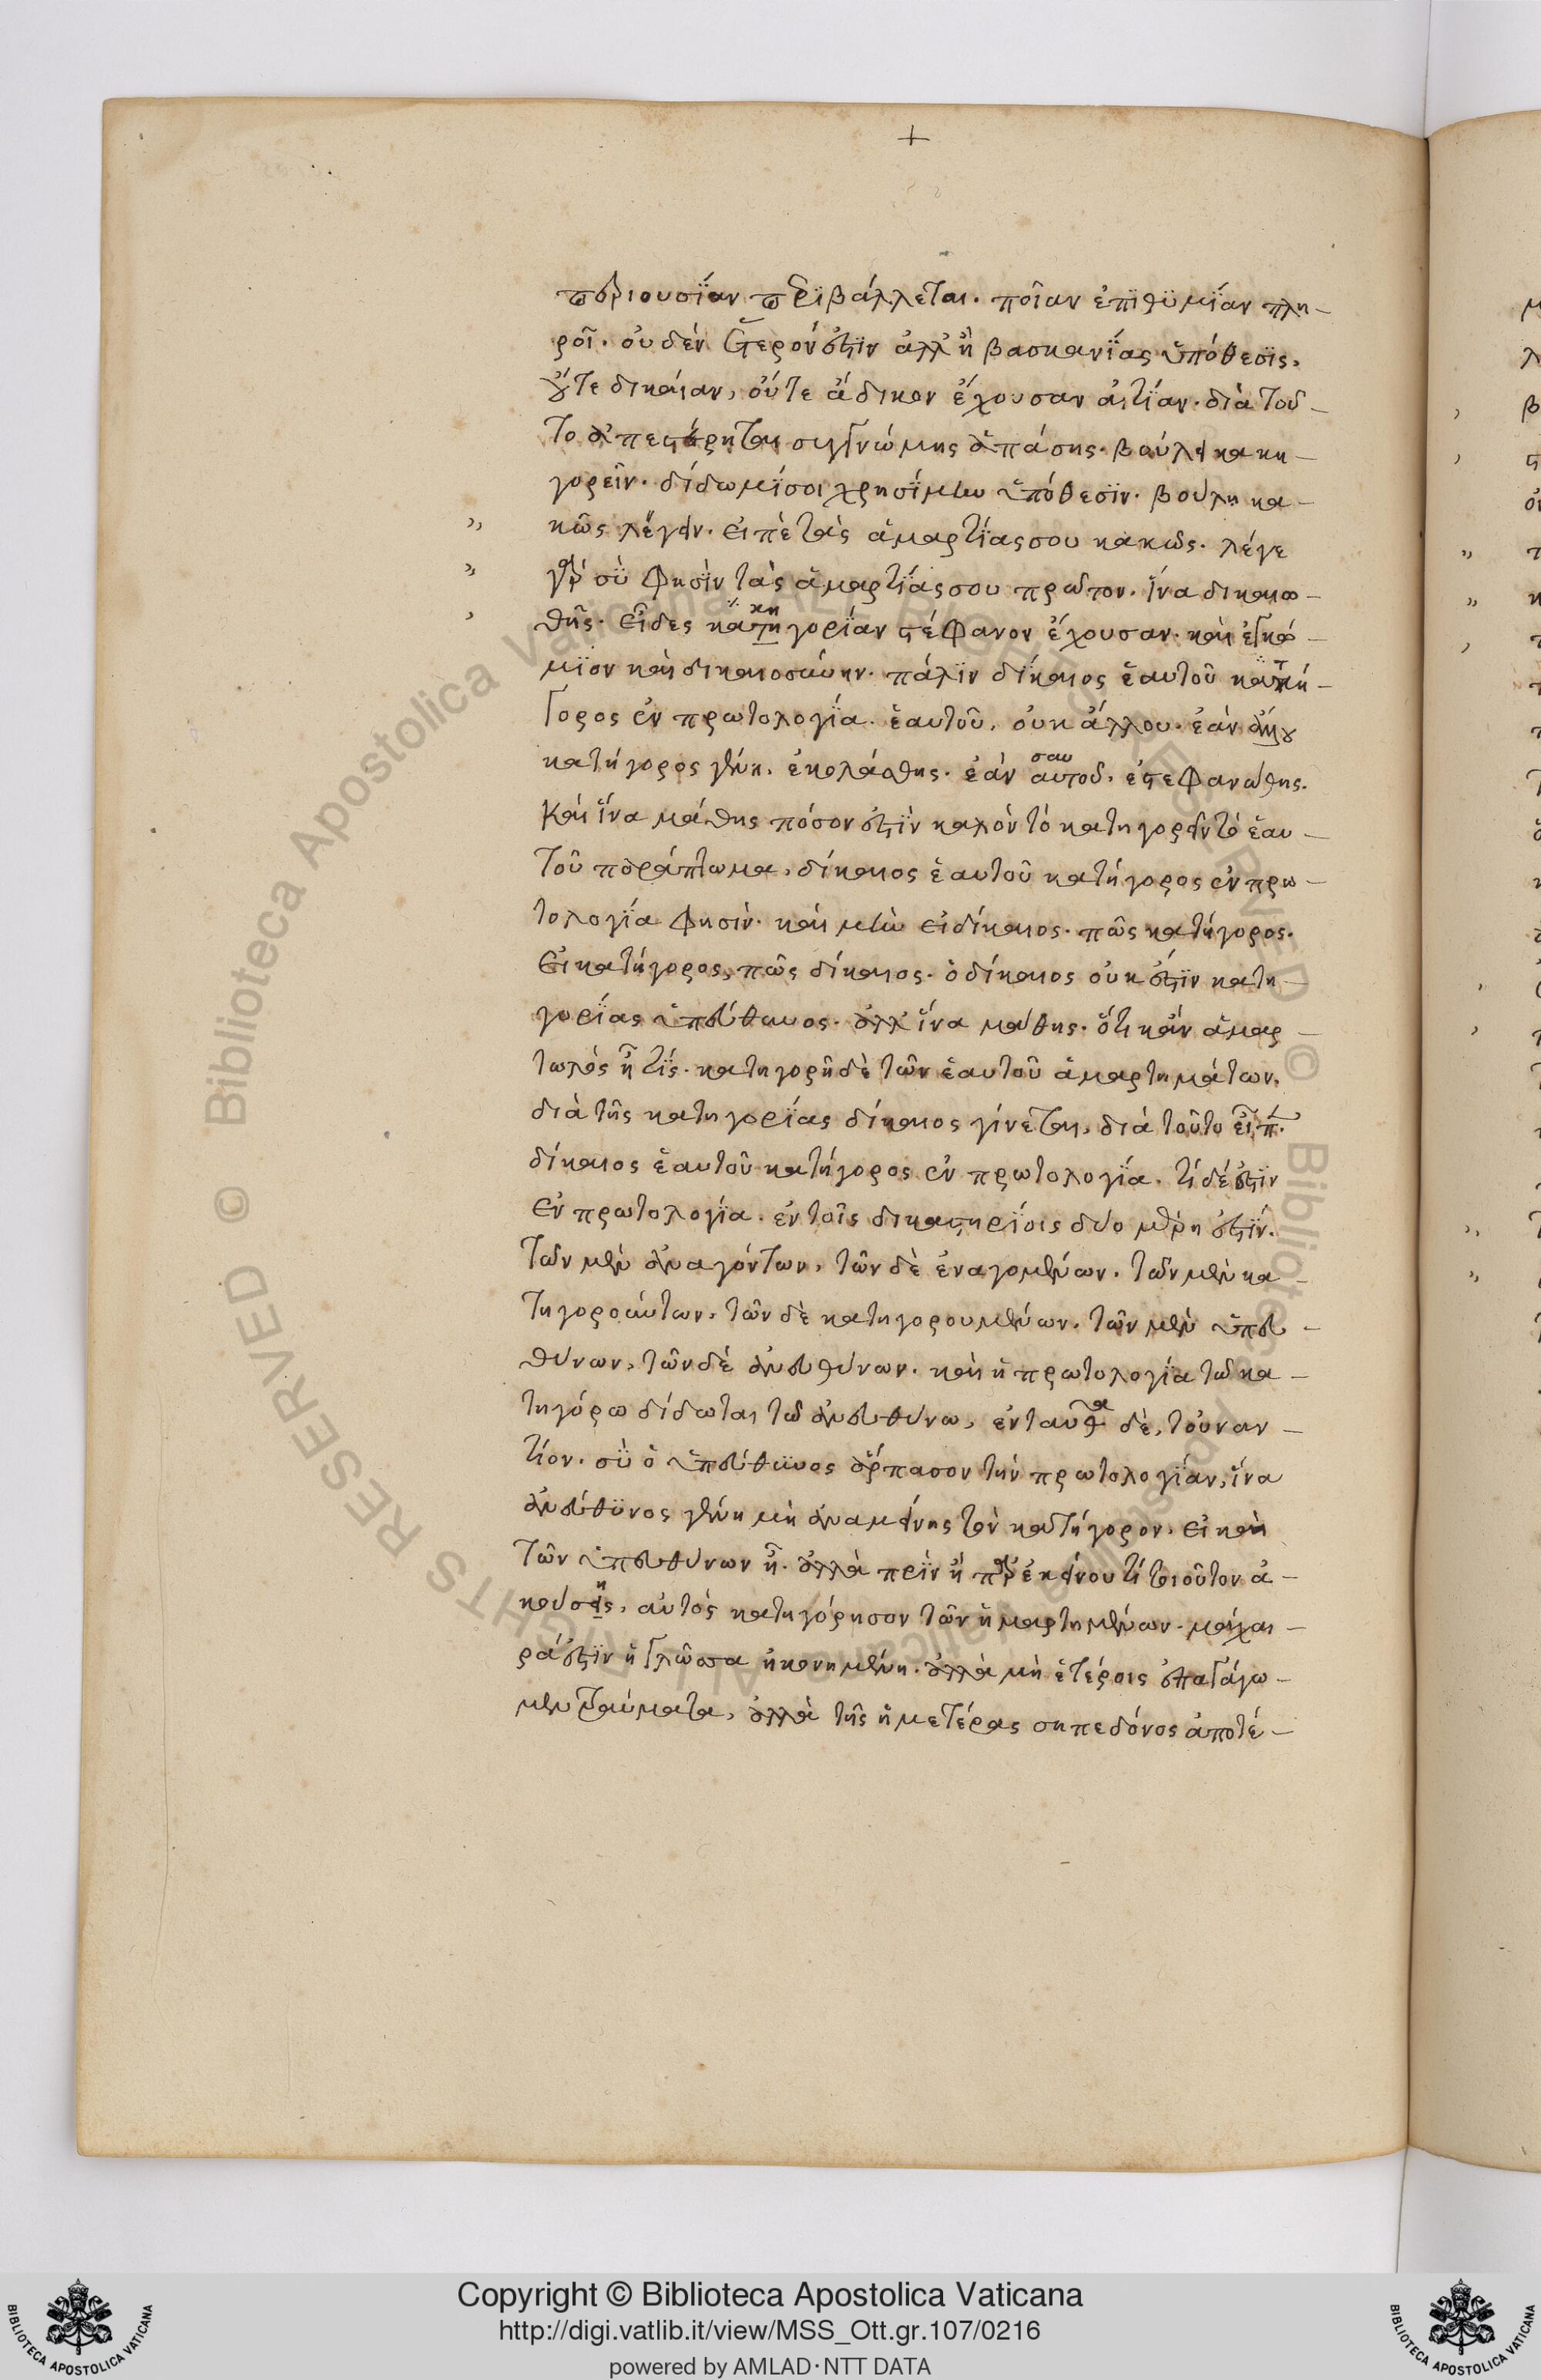 +
περιουσΐαν περϊβάλλεται. ποίαν ἐπϊθϋμΐαν πλη–
ροῖ. οὐδὲν ἕτερόν ἐστϊν ἀλλ' ἢ βασκανΐας ὑπόθεσϊς,
οὔτε δικαίαν, οὔτε ἄδικον ἔχουσαν αἰτΐαν. διὰ τοῦ–
το ἀπεστέρηται συγγνώμης ἁπάσης. βούλει κακη–
γορεῖν. δίδωμϊ σοι χρησΐμην ὑπόθεσϊν. βούλη κα–
κῶς λέγειν. εἰπὲ τὰς ἁμαρτΐας σου κακῶς. λέγε
γὰρ σὺ φησὶν τὰς ἁμαρτΐας σου πρῶτον. ἵνα δικαιω–
θῆς. εἶδες κατηγορΐαν στέφανον ἔχουσαν. καὶ ἐγκώ–
κη
μϊον καὶ δικαιοσύνην. πάλϊν δίκαιος ἑαυτοῦ κατή–
γορος ἐν πρωτολογΐα. ἑαυτοῦ, οὐκ ἄλλου. ἐὰν ἄλλου
κατήγορος γένη, ἐκολάσθης. ἐὰν αυτοῦ, ἐστεφανώθης.
σαυ
Καὶ ἵνα μάθης πόσον ἐστϊν καλὸν τὸ κατηγορεῖν τὸ ἑαυ–
τοῦ παράπτωμα, δίκαιος ἑαυτοῦ κατήγορος ἐν πρω–
τολογΐα φησὶν. καὶ μὴν εἰ δίκαιος. πῶς κατήγορος.
Εἰ κατήγορος, πῶς δίκαιος. ὁ δίκαιος οὐκ ἔστϊν κατη–
γορΐας ὑπεύθυνος. ἀλλ' ἵνα μάθης. ὅτι κἂν ἁμαρ–
τωλὸς ἦ τίς. κατηγορῆ δὲ τῶν ἑαυτοῦ ἁμαρτημάτων,
διὰ τῆς κατηγορΐας δίκαιος γίνεται, διὰ τοῦτο εἶπ.
δίκαιος ἑαυτοῦ κατήγορος ἐν πρωτολογΐα. τί δέ ἐστϊν
Ἐν πρωτολογΐα. ἐν τοῖς δικαστηρΐοις δύο μέρη ἐστϊν.
Τῶν μὲν ἐναγόντων, τῶν δὲ ἐναγομένων. τῶν μὲν κα–
τηγορούντων, τῶν δὲ κατηγορουμένων. τῶν μὲν ὑπευ–
θύνων, τῶν δὲ ἀνευθύνων. καὶ ἡ πρωτολογΐα τῶ κα–
τηγόρω δίδωται τῶ ἀνευθύνω, ἐνταῦθα δὲ, τοὐναν–
τίον. σὺ ὁ ὑπεύθυνος ἅρπασον τὴν πρωτολογΐαν, ἵνα
ἀνεύθϋνος γένη μὴ ἀναμείνης τὸν κατήγορον. εἰ καὶ
τῶν ὑπευθύνων ἦ. ἀλλὰ πρὶν ἢ παρ' ἐκείνου τί τοιοῦτον ἀ–
κούσης, αὐτὸς κατηγόρησον τῶν ἡμαρτημένων. μάχαι–
ρά ἐστϊν ἡ γλῶσσα ἠκονημένη. ἀλλὰ μὴ ἑτέροις ἐπαγάγω–
μεν τραύματα, ἀλλὰ τῆς ἡμετέρας σηπεδόνος ἀποτέ–
Copyright © Biblioteca Apostolica Vaticana
http://digi.vatlib.it/view/MSS_Ott.gr.107/0216
powered by AMLAD·NTT DATA
BIBLIOTECA APOSTOLICA VATICANA
BIBLIOTECA APOSTOLICA VATICANA